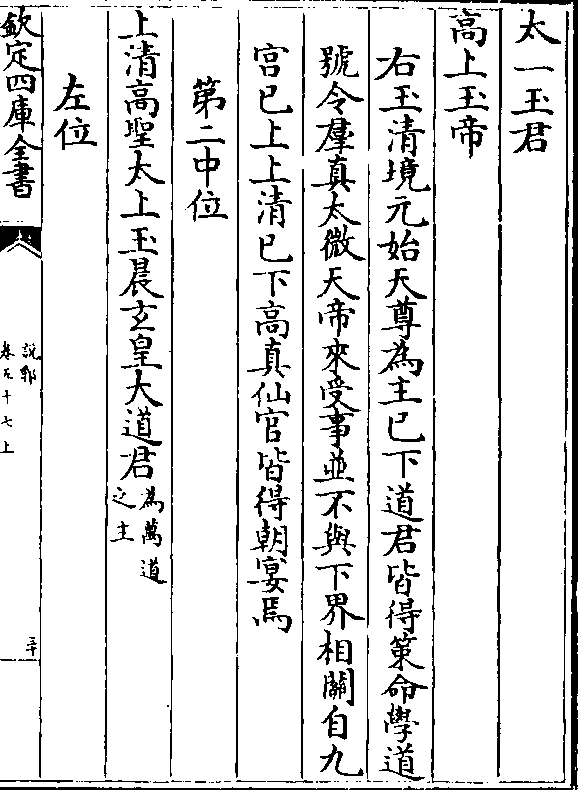 太一玉君
高上玉帝
右玉清境元始天尊為主已下道君皆得策命學道
號令羣真太微天帝來受事並不與下界相關自九
宫已上上清已下高真仙官皆得朝宴焉
第二中位
上清高聖太上玉晨玄皇大道君為萬道
之主
左位
欽定四庫全書
說郛
卷五十七上